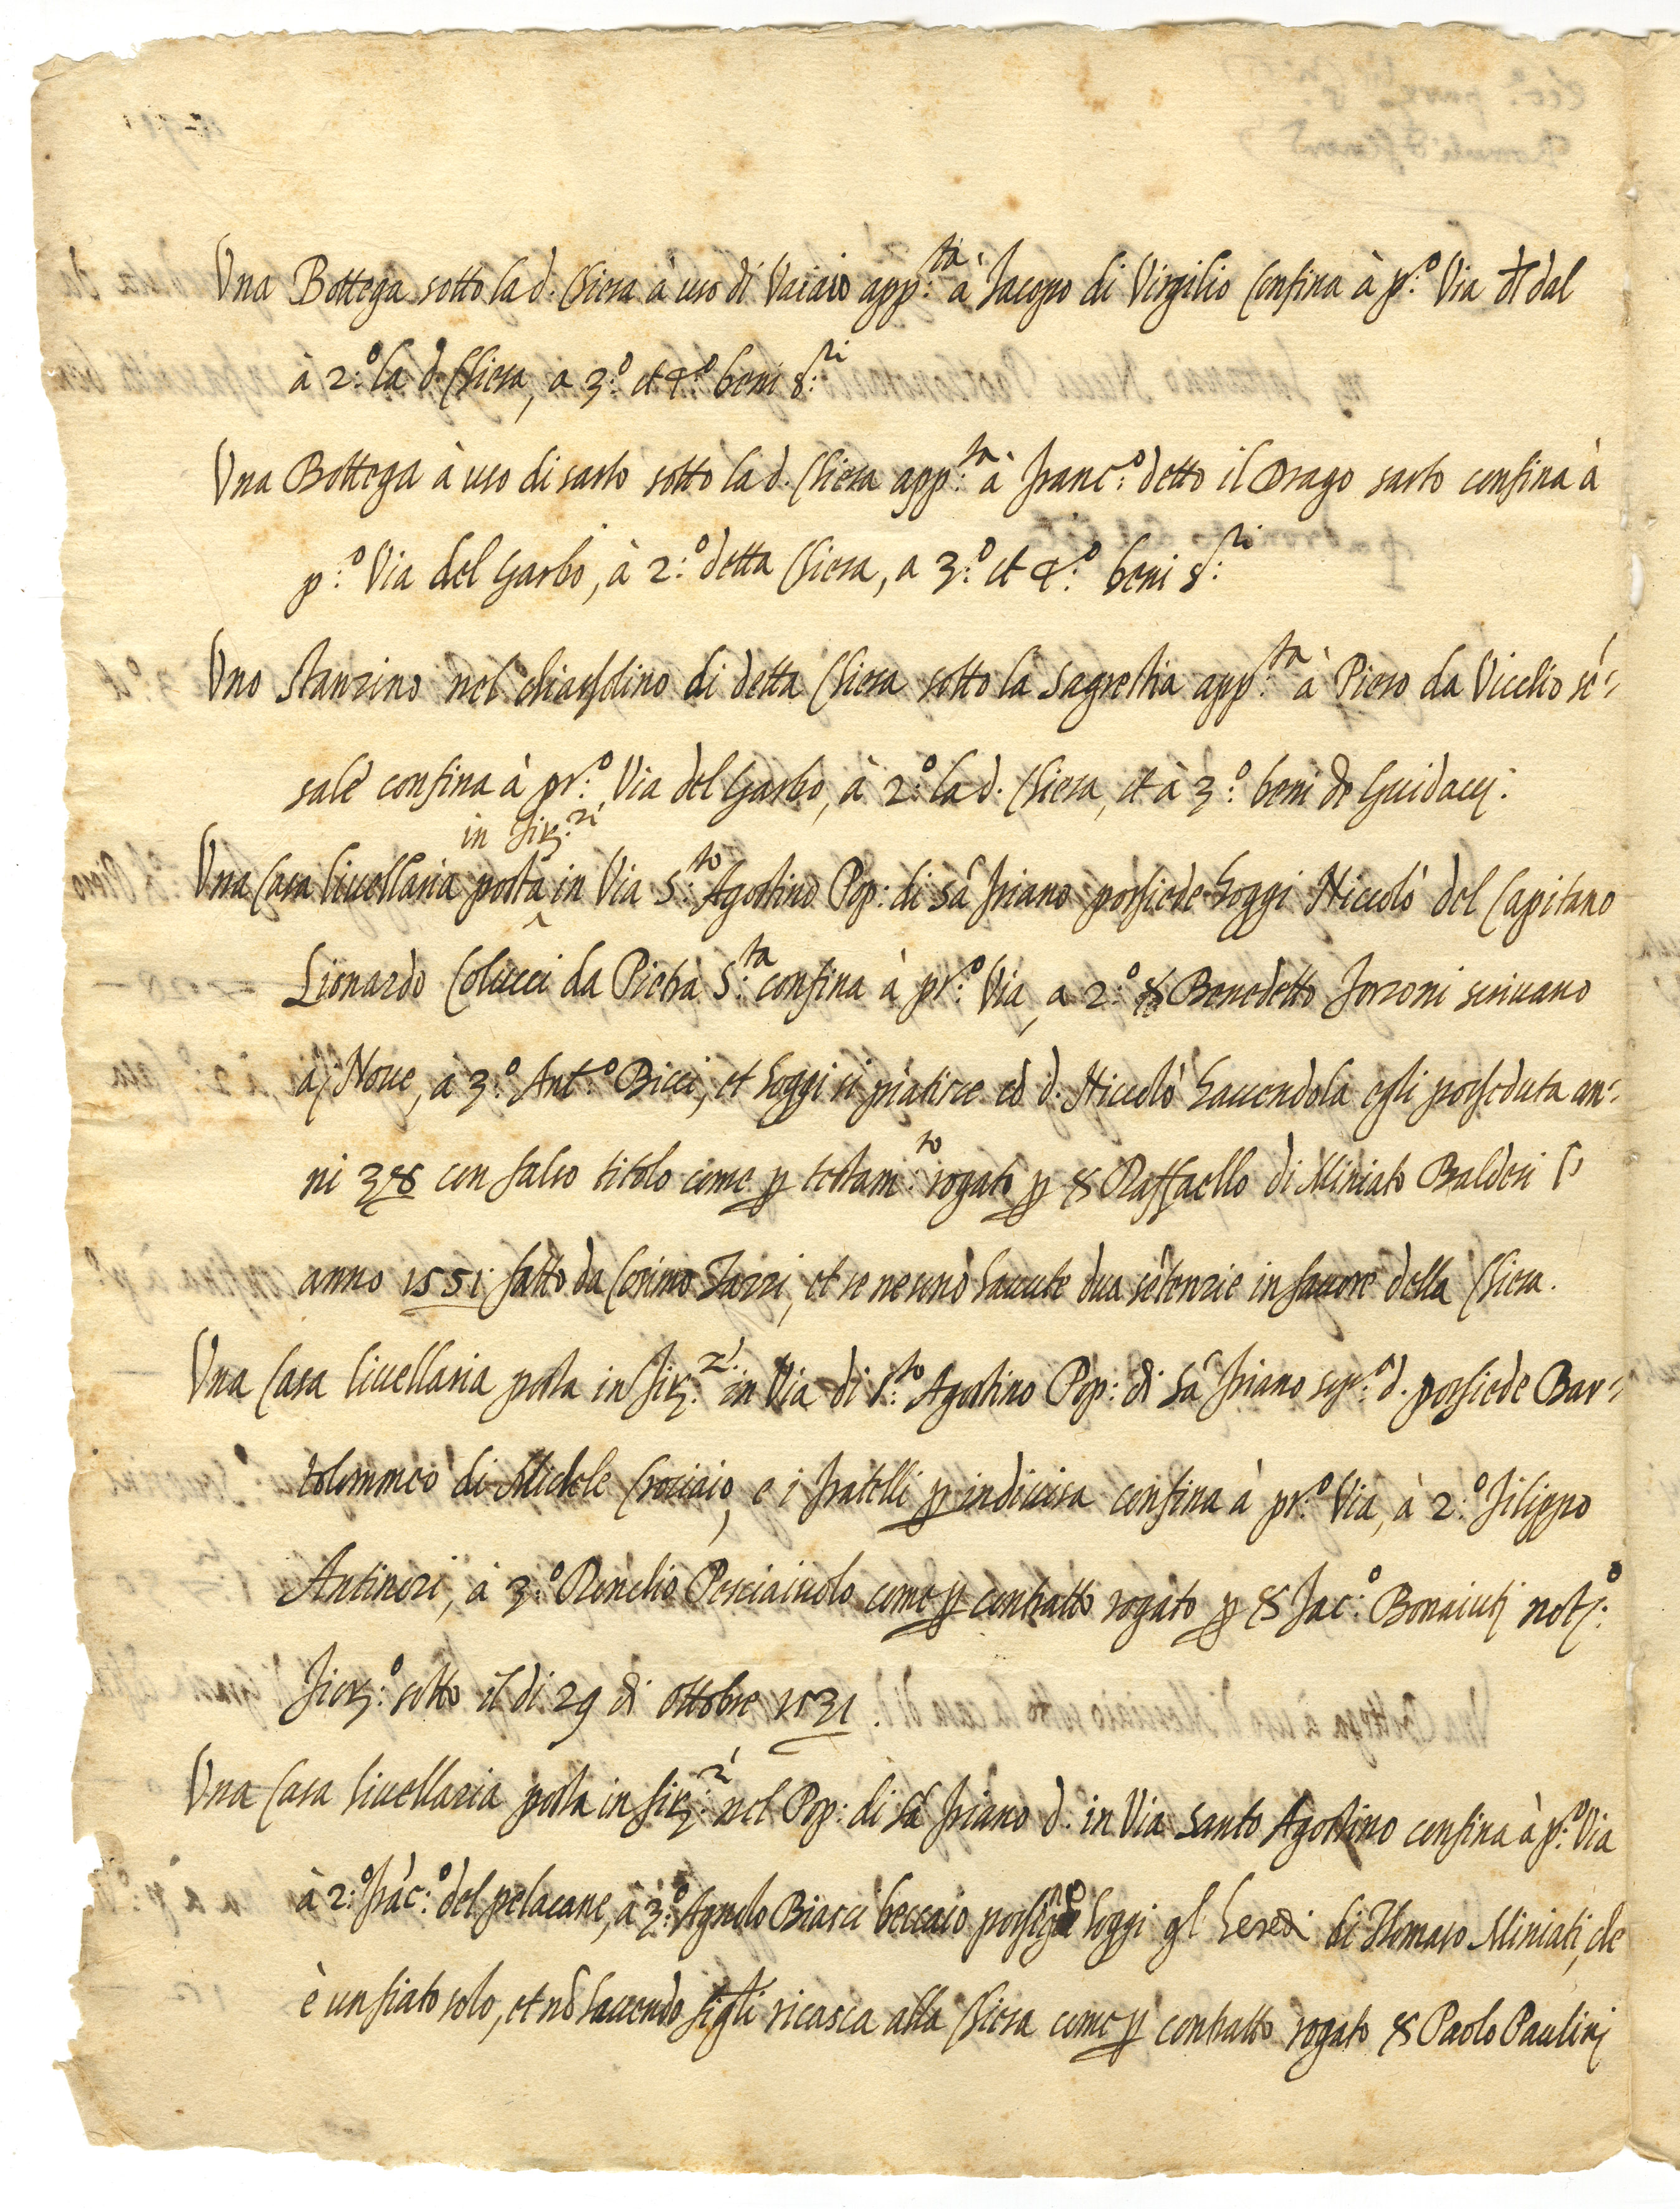 Vna Bottega sotto la d. Chiesa à uso di Vaiaio app:ta à Jacopo di Virgilio confina à p:o Via
à 2:o la d. Chiesa, a 3:o et 4:o beni S:ri
Vna Bottega à uso di sarto sotto la d. Chiesa app:ta à Franc:o detto il Drago sarto confina à
p:o Via del Garbo, à 2:o detta Chiesa, a 3:o et 4:o beni S:ri
Vno stanzino nel chiassolino di detta Chiesa sotto la sagrestia app:ta à Piero da Vicchio sē=
sale confina à pr:o Via del Garbo, à 2:o la d. Chiesa, et à 3:o beni de Guidacci.
in Fir:ze
Vna Casa livellaria posta in Via S:to Agostino Pop: di sā Friano possiede hoggi Niccolò del Capitano
Lionardo Colucci da Pietra S:ta confina à pr:o Via, a 2:o S Benedetto scrivano
a Noue, a 3:o Ant:o Bicci, et hoggi si piatisce cō d. Niccolò hauendola egli posseduta an=
ni 38 con falso titolo come p testam:to rogato p S Raffaello di Miniato Baldesi l'
anno 1551 fatto da Cosimo et se ne sono hauute dua sētenzie in fauore della Chiesa.
Vna Casa livellaria posta in Fir:ze in Via di S:to Agostino Pop: di sā Friano sop:a d. possiede Bar=
tolommeo di Michele Crociaio, e i fratelli p indivisa confina à pr:o Via, à 2:o Filippo
Antinori, à 3:o Pesciaiuolo come p contratto rogato p S Jac:o Bonaiuti not:o
Fior:o sotto il di 29 di ottobre 1531.
Vna Casa livellaria posta in Fir:ze nel Pop: di sā Friano d. in Via Santo Agostino confina à p:o Via
à 2:o Frāc:o del pelacane, à 3:o Agnolo Biacci beccaio hoggi gl heredi di Thomaso Miniati, che
è un fiato solo, et nō hauendo figli ricasca alla Chiesa come p contratto rogato S Paolo Paulini